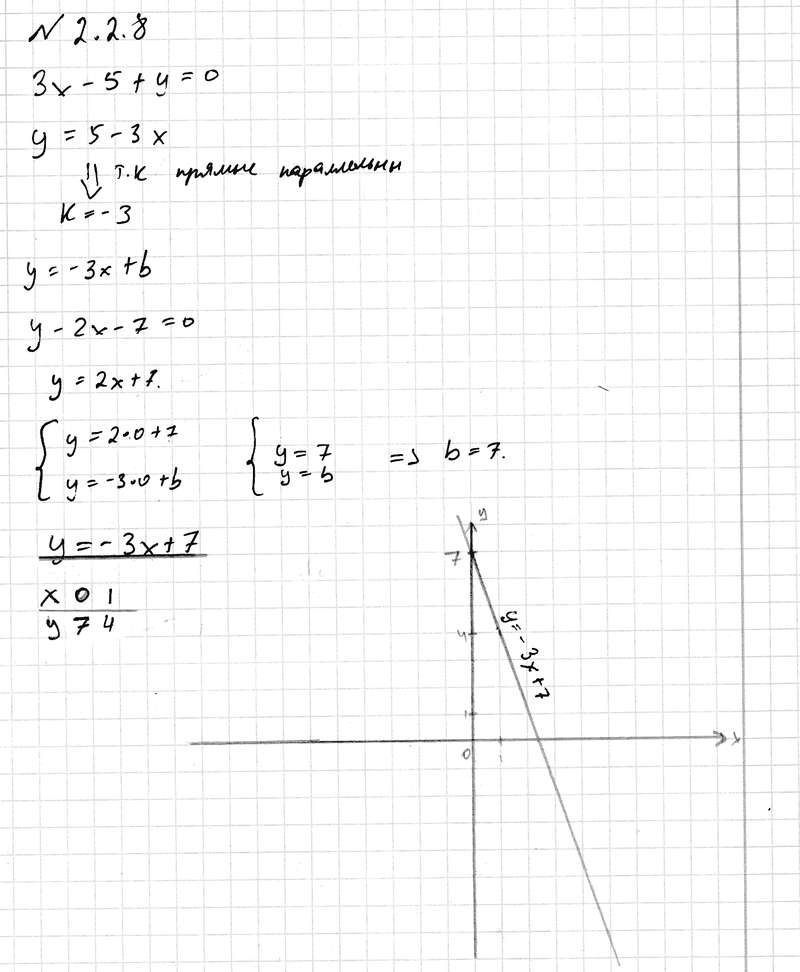 N 2.2.8
3x - 5 + y = 0
y = 5 - 3x
⇓ т.к прямые параллельны
K = -3
y = -3x + b
y - 2x - 7 = 0
y = 2x + 7.
{ y = 2·0 + 7
y = -3·0 + b
{ y = 7
y = b
=> b = 7.
y = -3x + 7
x 0 1
y 7 4
y
7
4
1
0
1
x
y = -3x + 7